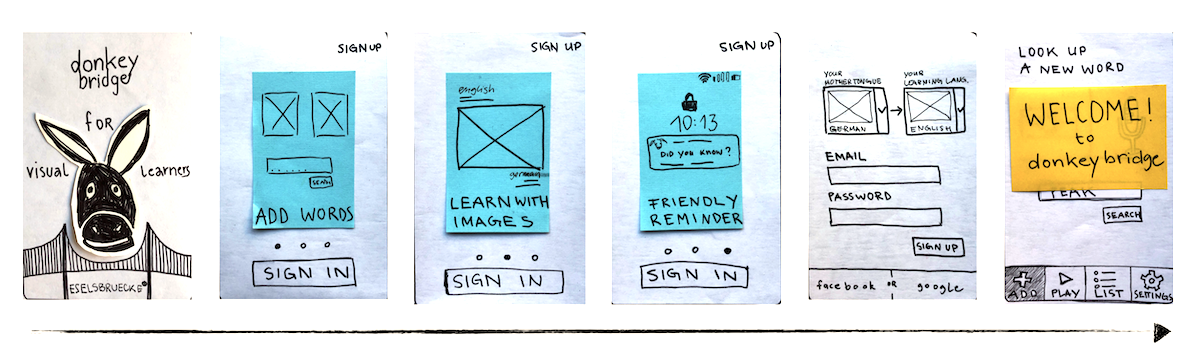 donkey
bridge
for
visual learners
ESELSBRUECKE
SIGN UP
SEND
ADD WORDS
SIGN IN
SIGN UP
english
german
LEARN WITH
IMAGES
SIGN IN
SIGN UP
10:13
DID YOU KNOW?
FRIENDLY
REMINDER
SIGN IN
YOUR
MOTHERTONGUE
YOUR
LEARNING LANG.
GERMAN
ENGLISH
EMAIL
PASSWORD
SIGN UP
facebook OR google
LOOK UP
A NEW WORD
WELCOME!
to
donkey bridge
SEARCH
ADD PLAY LIST SETTINGS